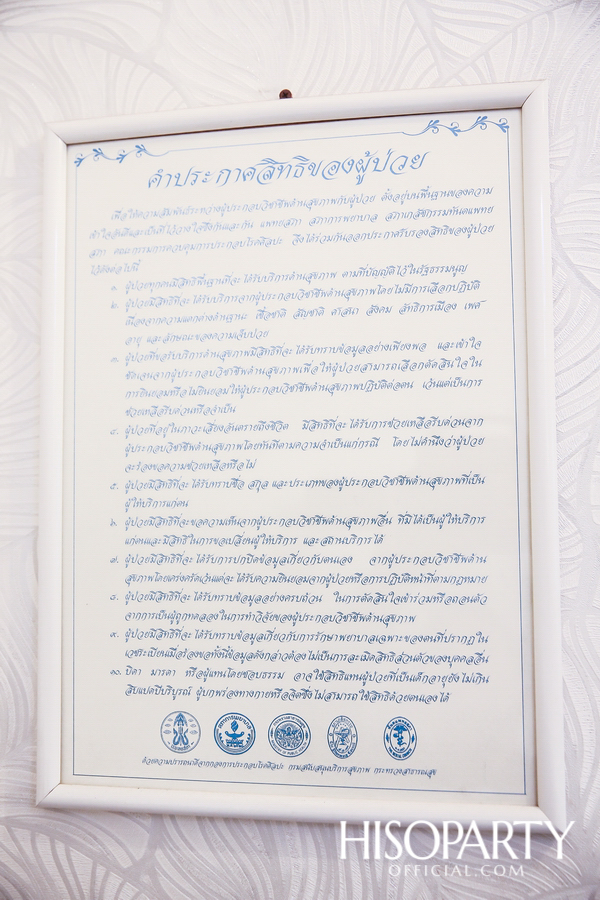 คำประกาศสิทธิของผู้ป่วย
เพื่อให้ความสัมพันธ์ระหว่างผู้ประกอบวิชาชีพด้านสุขภาพกับผู้ป่วย ตั้งอยู่บนพื้นฐานของความ
เข้าใจอันดีและเป็นที่ไว้วางใจซึ่งกันและกัน แพทยสภา สภาการพยาบาล สภาเภสัชกรรมทันตแพทย
สภา คณะกรรมการควบคุมการประกอบโรคศิลปะ จึงได้ร่วมกันออกประกาศรับรองสิทธิของผู้ป่วย
ไว้ดังต่อไปนี้
๑. ผู้ป่วยทุกคนมีสิทธิพื้นฐานที่จะได้รับบริการด้านสุขภาพ ตามที่บัญญัติไว้ในรัฐธรรมนูญ
๒. ผู้ป่วยมีสิทธิที่จะได้รับบริการจากผู้ประกอบวิชาชีพด้านสุขภาพโดยไม่มีการเลือกปฏิบัติ
เนื่องจากความแตกต่างด้านฐานะ เชื้อชาติ สัญชาติ ศาสนา สังคม ลัทธิการเมือง เพศ
อายุ และลักษณะของความเจ็บป่วย
๓. ผู้ป่วยที่ขอรับบริการด้านสุขภาพมีสิทธิที่จะได้รับทราบข้อมูลอย่างเพียงพอ และเข้าใจ
ชัดเจนจากผู้ประกอบวิชาชีพด้านสุขภาพเพื่อให้ผู้ป่วยสามารถเลือกตัดสินใจใน
การยินยอมหรือไม่ยินยอมให้ผู้ประกอบวิชาชีพด้านสุขภาพปฏิบัติต่อตน เว้นแต่เป็นการ
ช่วยเหลือรีบด่วนหรือจำเป็น
๔. ผู้ป่วยที่อยู่ในภาวะเสี่ยงอันตรายถึงชีวิต มีสิทธิที่จะได้รับการช่วยเหลือรีบด่วนจาก
ผู้ประกอบวิชาชีพด้านสุขภาพโดยทันทีตามความจำเป็นแก่กรณี โดยไม่คำนึงว่าผู้ป่วย
จะร้องขอความช่วยเหลือหรือไม่
๕. ผู้ป่วยมีสิทธิที่จะได้รับทราบชื่อ สกุล และประเภทของผู้ประกอบวิชาชีพด้านสุขภาพที่เป็น
ผู้ให้บริการแก่ตน
๖. ผู้ป่วยมีสิทธิที่จะขอความเห็นจากผู้ประกอบวิชาชีพด้านสุขภาพอื่น ที่มิได้เป็นผู้ให้บริการ
แก่ตนและมีสิทธิในการขอเปลี่ยนผู้ให้บริการ และสถานบริการได้
๗. ผู้ป่วยมีสิทธิที่จะได้รับการปกปิดข้อมูลเกี่ยวกับตนเอง จากผู้ประกอบวิชาชีพด้าน
สุขภาพโดยเคร่งครัดเว้นแต่จะได้รับความยินยอมจากผู้ป่วยหรือการปฏิบัติหน้าที่ตามกฎหมาย
๘. ผู้ป่วยมีสิทธิที่จะได้รับทราบข้อมูลอย่างครบถ้วน ในการตัดสินใจเข้าร่วมหรือถอนตัว
จากการเป็นผู้ถูกทดลองในการทำวิจัยของผู้ประกอบวิชาชีพด้านสุขภาพ
๙. ผู้ป่วยมีสิทธิที่จะได้รับทราบข้อมูลเกี่ยวกับการรักษาพยาบาลเฉพาะของตนที่ปรากฏใน
เวชระเบียนเมื่อร้องขอทั้งนี้ข้อมูลดังกล่าวต้องไม่เป็นการละเมิดสิทธิส่วนตัวของบุคคลอื่น
๑๐. บิดา มารดา หรือผู้แทนโดยชอบธรรม อาจใช้สิทธิแทนผู้ป่วยที่เป็นเด็กอายุยังไม่เกิน
สิบแปดปีบริบูรณ์ ผู้บกพร่องทางกายหรือจิตซึ่งไม่สามารถใช้สิทธิด้วยตนเองได้
ด้วยความปรารถนาดีจากกองการประกอบโรคศิลปะ กรมสนับสนุนบริการสุขภาพ กระทรวงสาธารณสุข
HISOPARTY
OFFICIAL.COM